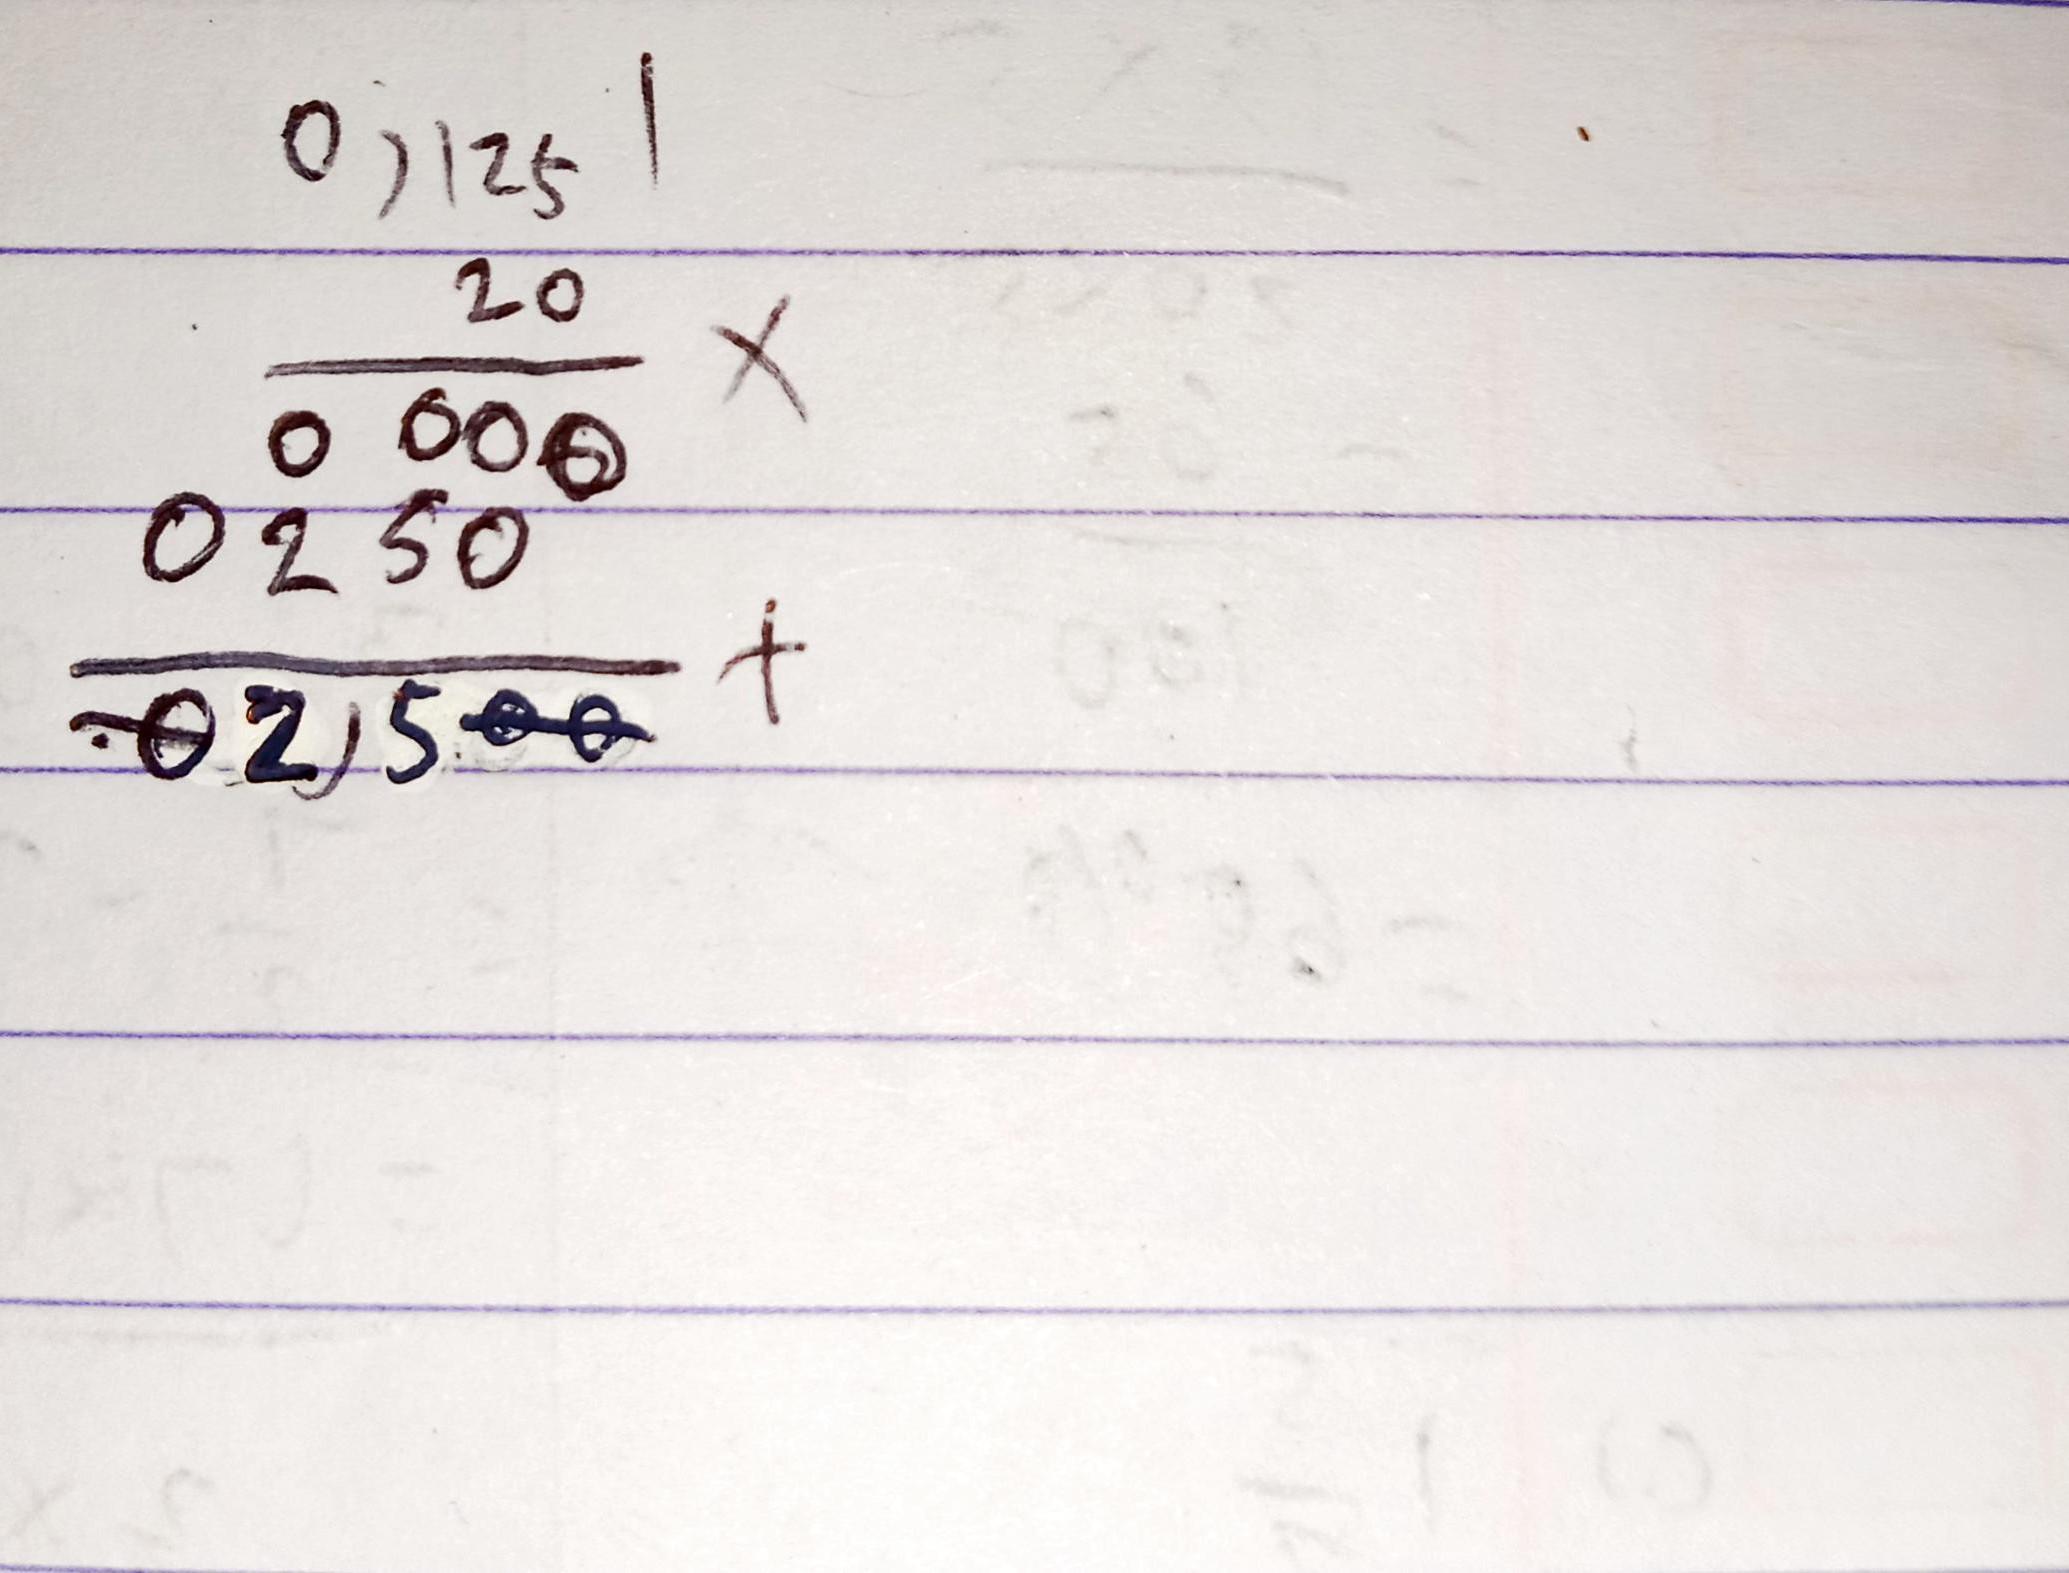 0,125 |
20 ×
0 000
0250
+
02,500